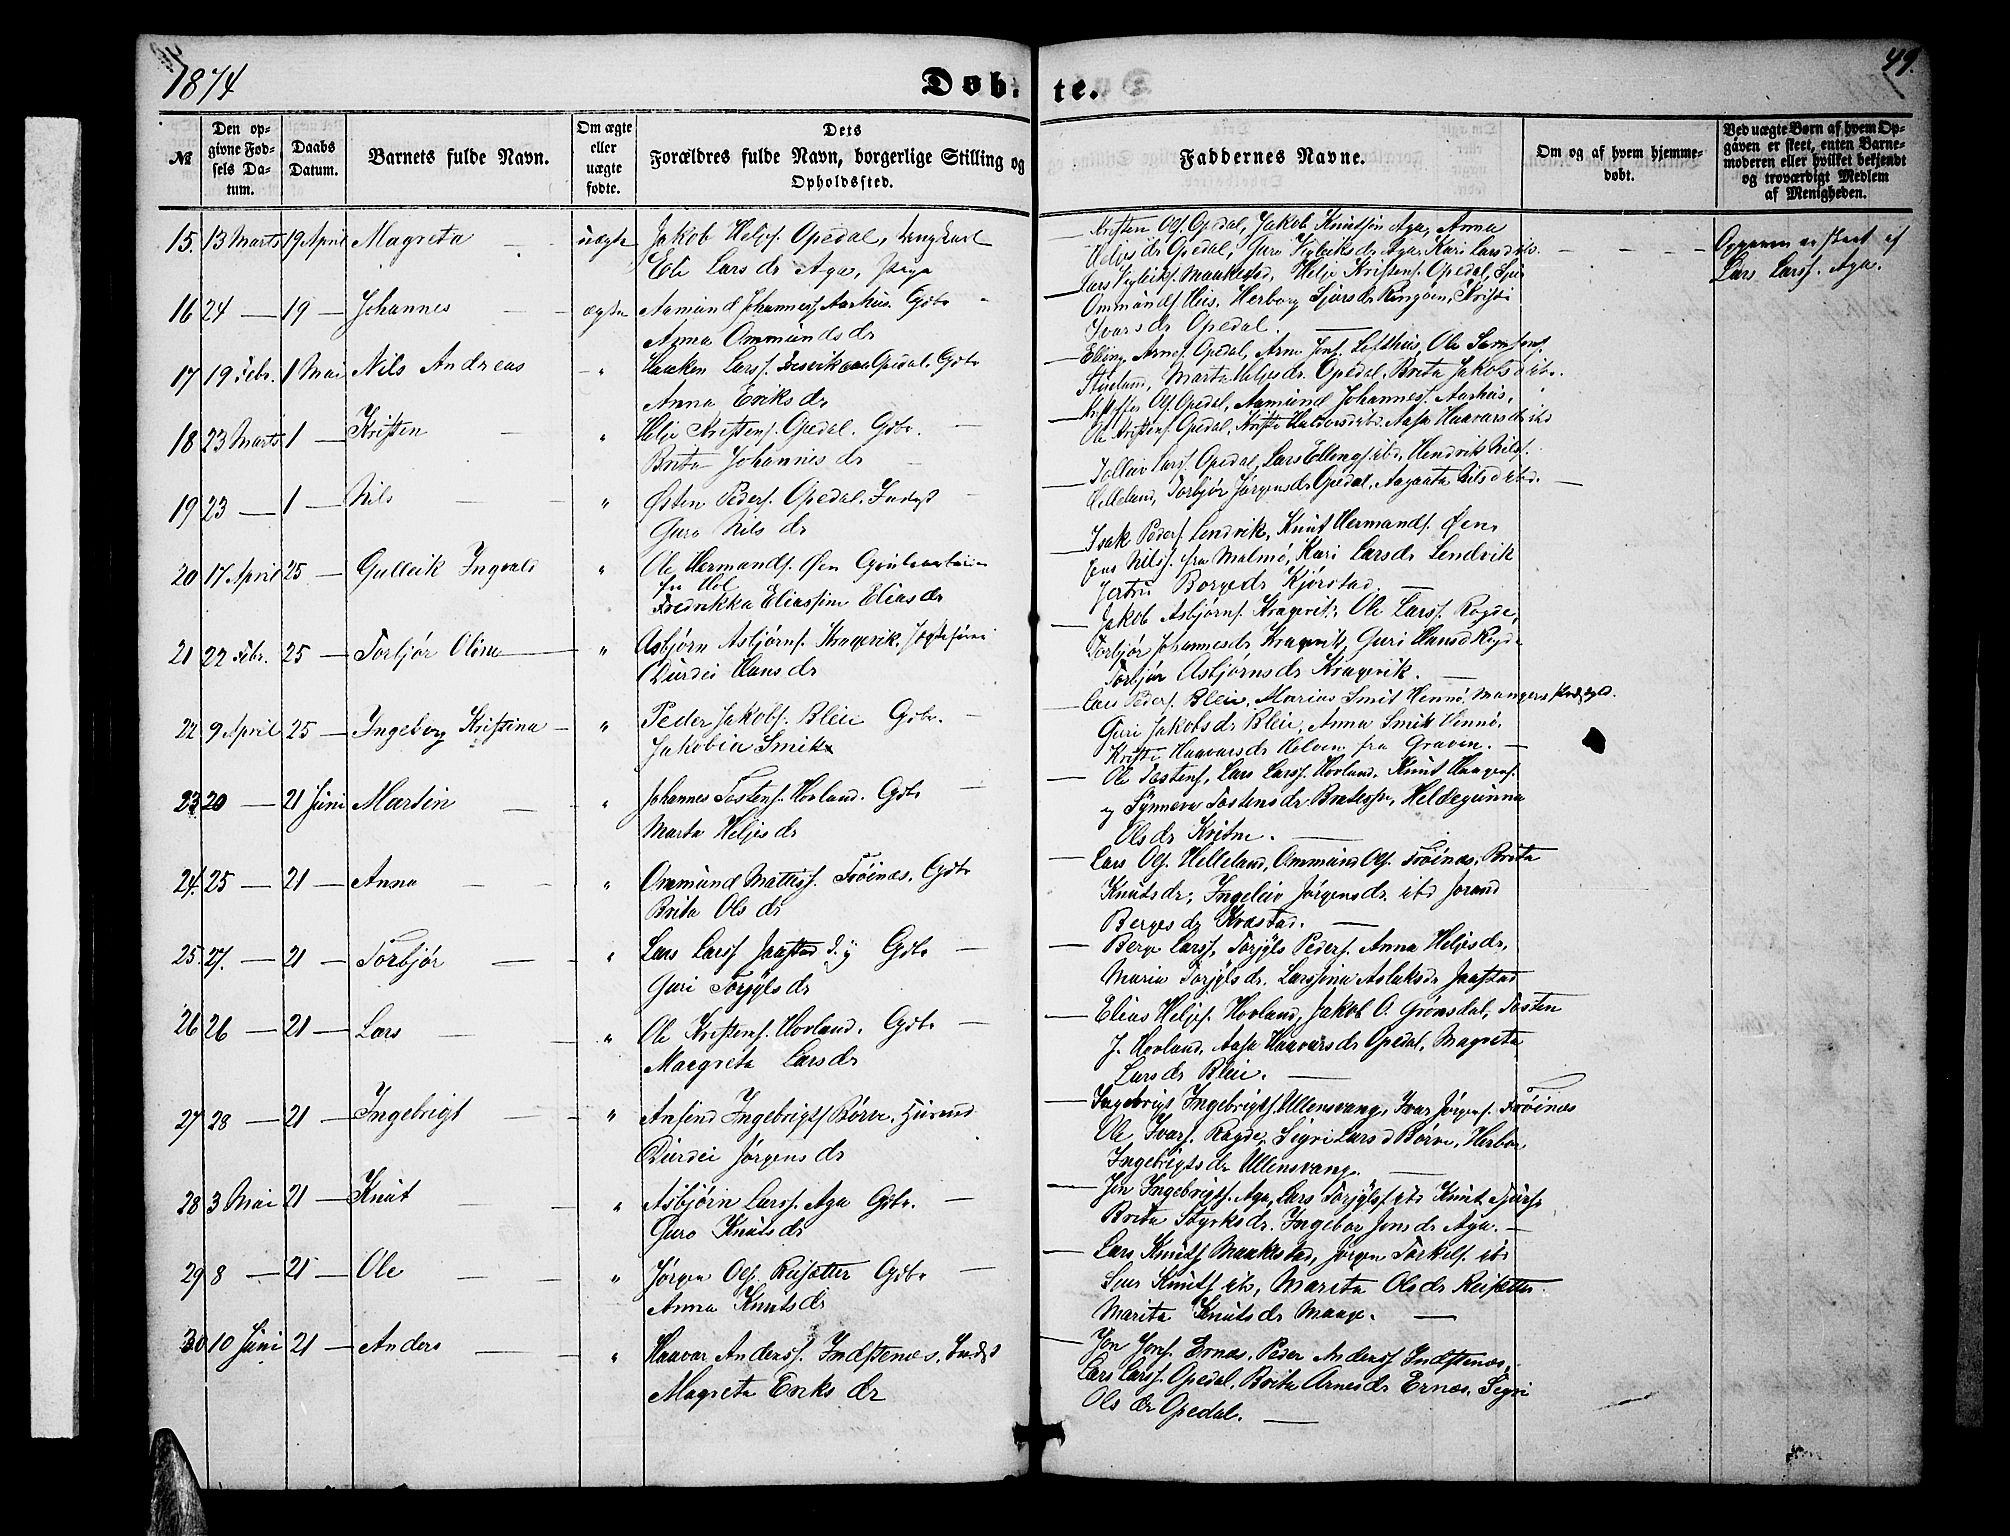 1874
49.
Døbte.
№
Den op-
givne Fød-
sels Da-
tum.
Daabs
Datum.
Barnets fulde Navn.
Om ægte
eller
uægte
fødte.
Dets
Forældres fulde Navn, borgerlige Stilling og
Opholdssted.
Faddernes Navne.
Om og af hvem hjemme-
døbt.
Ved uægte Børn af hvem Op-
gaven er skeet, enten Barne-
moderen eller hvilket bekjendt
og troværdigt Medlem
af Menigheden.
15. 13 Marts 19 April Magreta — uægte Jakob Heljes. Opedal, Ungkarl
Eli Larsdr Aga, Pige
Kristen Ols. Opedal, Jakob Knutsen Aga, Anna
Heljesdr Opedal, Guro Viglviksdr Aga, Kari Larsdr ib.
Opgaven er skeet af
Lars Larss. Aga.
16 24 — 19 — Johannes — ægte Aamund Johanness. Aarhus. Gdbr
Anna Ommundsdr
Lars Viglviks. Maakestad, Helje Kristens. Opedal,
Ommunds. Hus, Herborg Sjursdr Ringøen, Kristi
Ivarsdr Opedal.
17 19 Febr. 1 Mai Nils Andreas — " Haaken Larss. Opedal. Gdbr
Anna Eriksdr
Elling Arnes. Opedal, Arne Jons. Lofthus, Ole Samsons.
Marta Heljesdr. Opedal, Brita Jakobsd ib.
18 23 Marts 1 — Kristen — " Helje Kristens. Opedal. Gdbr. —
Brita Johannesdr
Kristoffer Ols. Opedal, Aamund Johanness. Aarhus,
Ole Kristens. Opedal, Kristi Haldorsd ibd. Aasa Haavarsdr ib
19 23 — 1 — Nils — " Østen Peders. Opedal. Inds
Guro Nilsdr
Tolleiv Larss. Opedal, Lars Ellings. ibd, Hendrik Nils.
Helleland, Torbjør Jørgensdr Opedal, Aagaata Nilsd ibd. —
20 17 April 25 — Gulleik Ingvald " Ole Hermands. Øen
Fredrikka Eliassine Eliasdr
Isak Peders. Lendvik, Knut Hermands. Øen,
Jens Nilss. fra Malmø, Kari Larsdr Lendvik
Jertru Borgesdr Kjørstad. —
21 22 Febr. 25 — Torbjør Olina — " Asbjørn Asbjørns. Kragevik.
Durdei Hansdr
Jakob Asbjørns. Kragevik, Ole Larss. Ragde,
Torbjør Johannesdr. Kragevik, Guri Hansd Ragde
Torbjør Asbjørnsdr Kragevik. —
22 9 April 25 — Ingeborg Kristina — " Peder Jakobs. Bleie Gdbr. —
Jakobia Smith
Lars Peders. Bleie, Marius Smit Hennø, Mangers
Guri Jakobsdr Bleie, Anna Smith Hennø,
Kristi Haavarsdr Helven fra Graven. —
23 20 — 21 Juni Martin — " Johannes Tostens. Hovland. Gdbr —
Marta Heljesdr
Ole Tostens, Lars Larss. Hovland, Knut Haagens.
og Synneva Tostensdr Hildegunna
Olsdr Kvitne. —
24. 25 — 21 — Anna — " Ommund Mattiss. Frøinæs. Gdbr
Brita Olsdr
Lars Ols. Helleland, Ommund Ols. Frøinæs, Brita
Knutsdr, Ingeleiv Jørgensdr. ibd Jorand
Bergesdr Kvæstad. —
25 27. — 21 — Torbjør — " Lars Larss Jaastad Gdbr —
Guri Torgilsdr
Berge Larss. Torgils Peders. Anna Heljesdr,
Maria Torgilsdr. Larssina Aslaksdr Jaastad
26 26 — 21 — Lars — " Ole Kristens. Hovland. Gdbr —
Margreta Larsdr
Elias Heljes. Hovland, Jakob O. Grønsdal, Tosten
J. Hovland, Aasa Haavarsdr Opedal, Magreta
Larsdr Bleie. —
27 28 — 21 — Ingebrigt — " Ansind Ingebrigts. Børve. Husmd
Durdei Jørgensdr
Ingebrigt Ingebrigts. Ullensvang, Ivar Jørgens. Frøinæs
Ole Ivars. Ragde, Sigri Larsd Børve, Herbor
Ingebrigtsdr Ullensvang. —
28 3 Mai 21 — Knut — " Asbjørn Larss. Aga Gdbr. —
Guro Knutsdr
Jon Ingebrigts. Aga, Lars Torgils. ibd Knut Sjurs.
Brita Styrksdr. Ingebor Jonsdr Aga. —
29 8 — 21 — Ole — " Jørgen Ols. Reisæter Gdbr —
Anna Knutsdr
Lars Knuts. Maakestad, Jørgen Torkels. ibd
Sjur Knuts. ib, Marita Olsdr Reisæter.
Marita Knutsdr Maage. —
30 10 Juni 21 — Anders — " Haavar Anderss. Indstenæs. Inds
Magreta Eriksdr
Jon Jons. Ernæs, Peder Anderss Indstenæs,
Lars Larss. Opedal, Brita Arnesdr Ernæs, Sigri
Olsdr Opedal. —